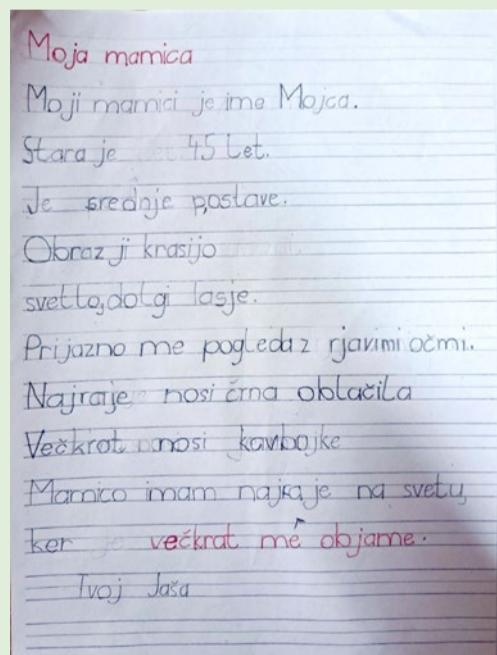 Moja mamica
Moji mamici je ime Mojca.
Stara je 45 let.
Je srednje postave.
Obraz ji krasijo
svetlo, dolgi lasje.
Prijazno me pogleda z rjavimi očmi.
Najraje nosi črna oblačila
Večkrat nosi kavbojke
Mamico imam najraje na svetu,
ker večkrat me objame.
Tvoj Jaša